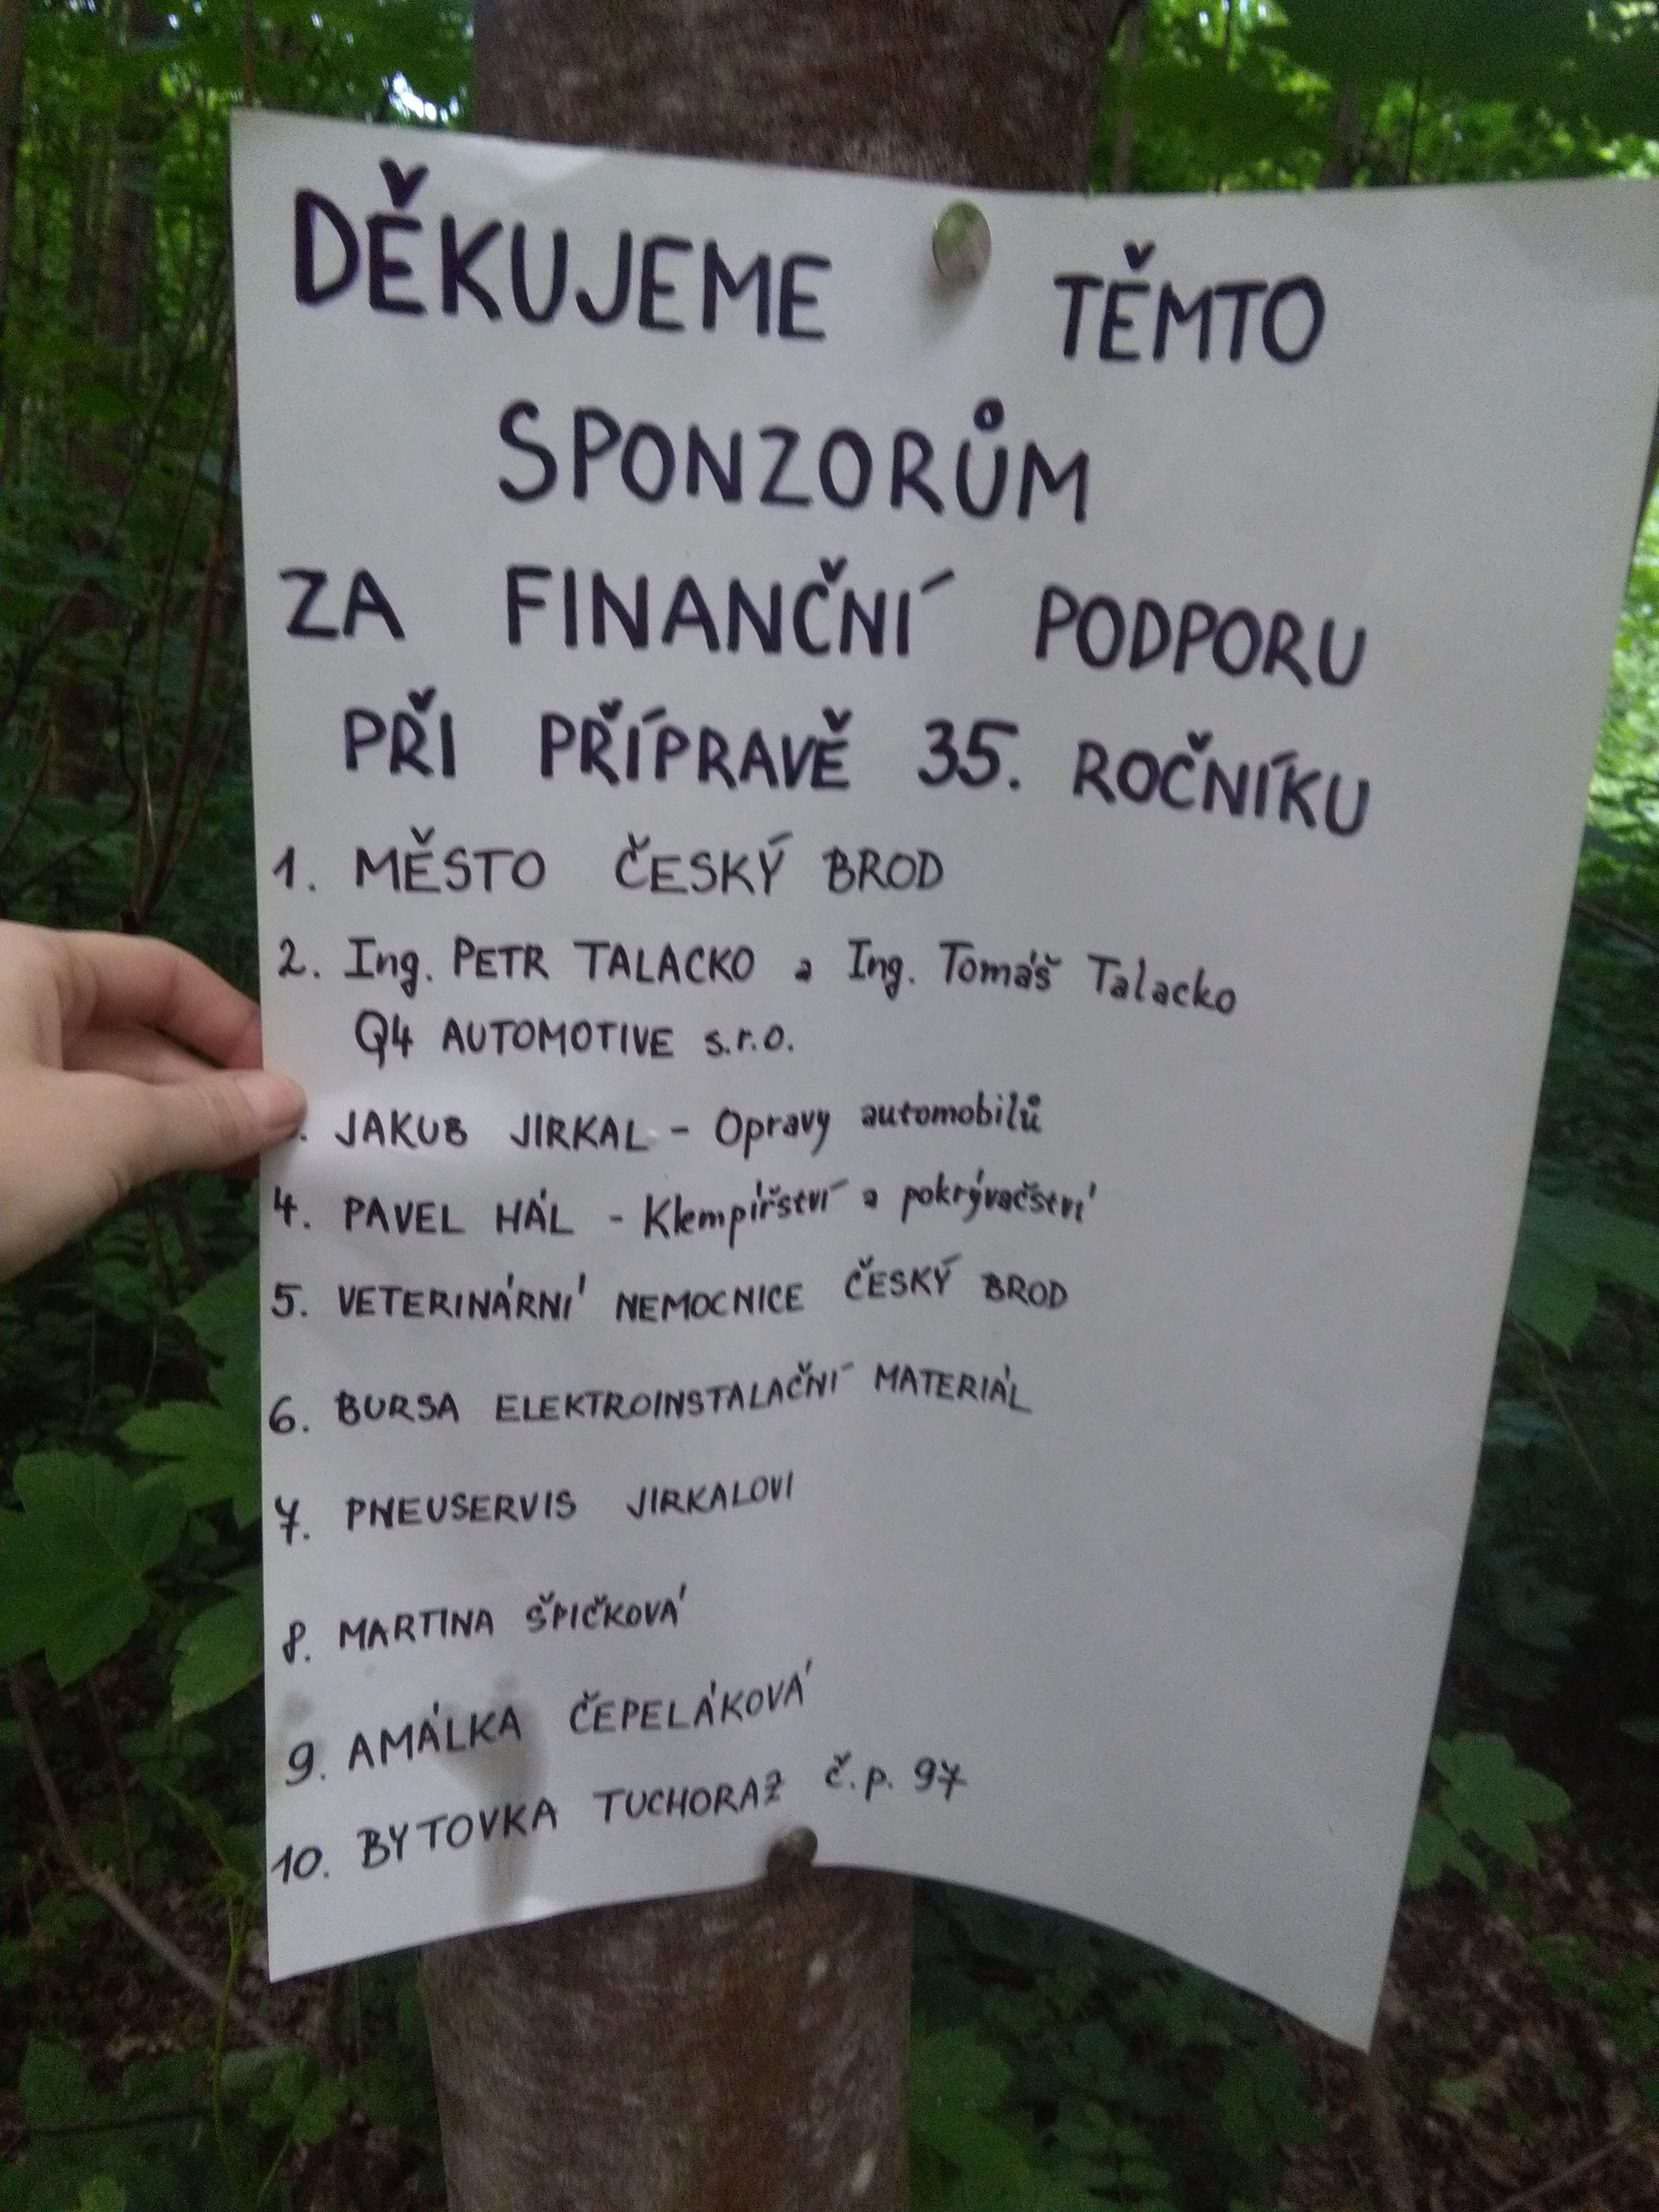 DĚKUJEME TĚMTO
SPONZORŮM
ZA FINANČNÍ PODPORU
PŘI PŘÍPRAVĚ 35. ROČNÍKU
1. MĚSTO ČESKÝ BROD
2. Ing. PETR TALACKO a Ing. Tomáš Talacko
Q4 AUTOMOTIVE s.r.o.
. JAKUB JIRKAL - Opravy automobilů
4. PAVEL HÁL - Klempířství a pokrývačství
5. VETERINÁRNÍ NEMOCNICE ČESKÝ BROD
6. BURSA ELEKTROINSTALAČNÍ MATERIÁL
7. PNEUSERVIS JIRKALOVI
8. MARTINA ŠPIČKOVÁ
9. AMÁLKA ČEPELÁKOVÁ
10. BYTOVKA TUCHORAZ č.p. 97